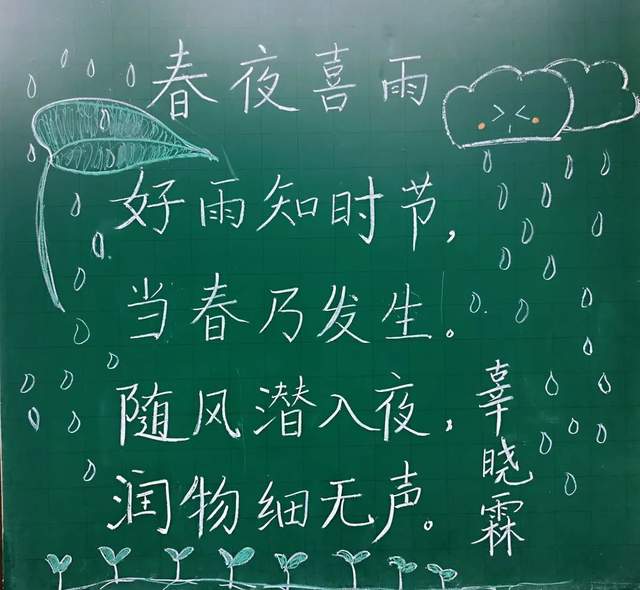 春夜喜雨
好雨知时节,
当春乃发生。
随风潜入夜,
润物细无声。
辜晓霖